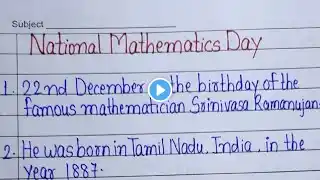 Subject
National Mathematics Day
1. 22nd December the birthday of the
famous mathematician Srinivasa Ramanujan.
2. He was born in Tamil Nadu, India, in the
year 1887.